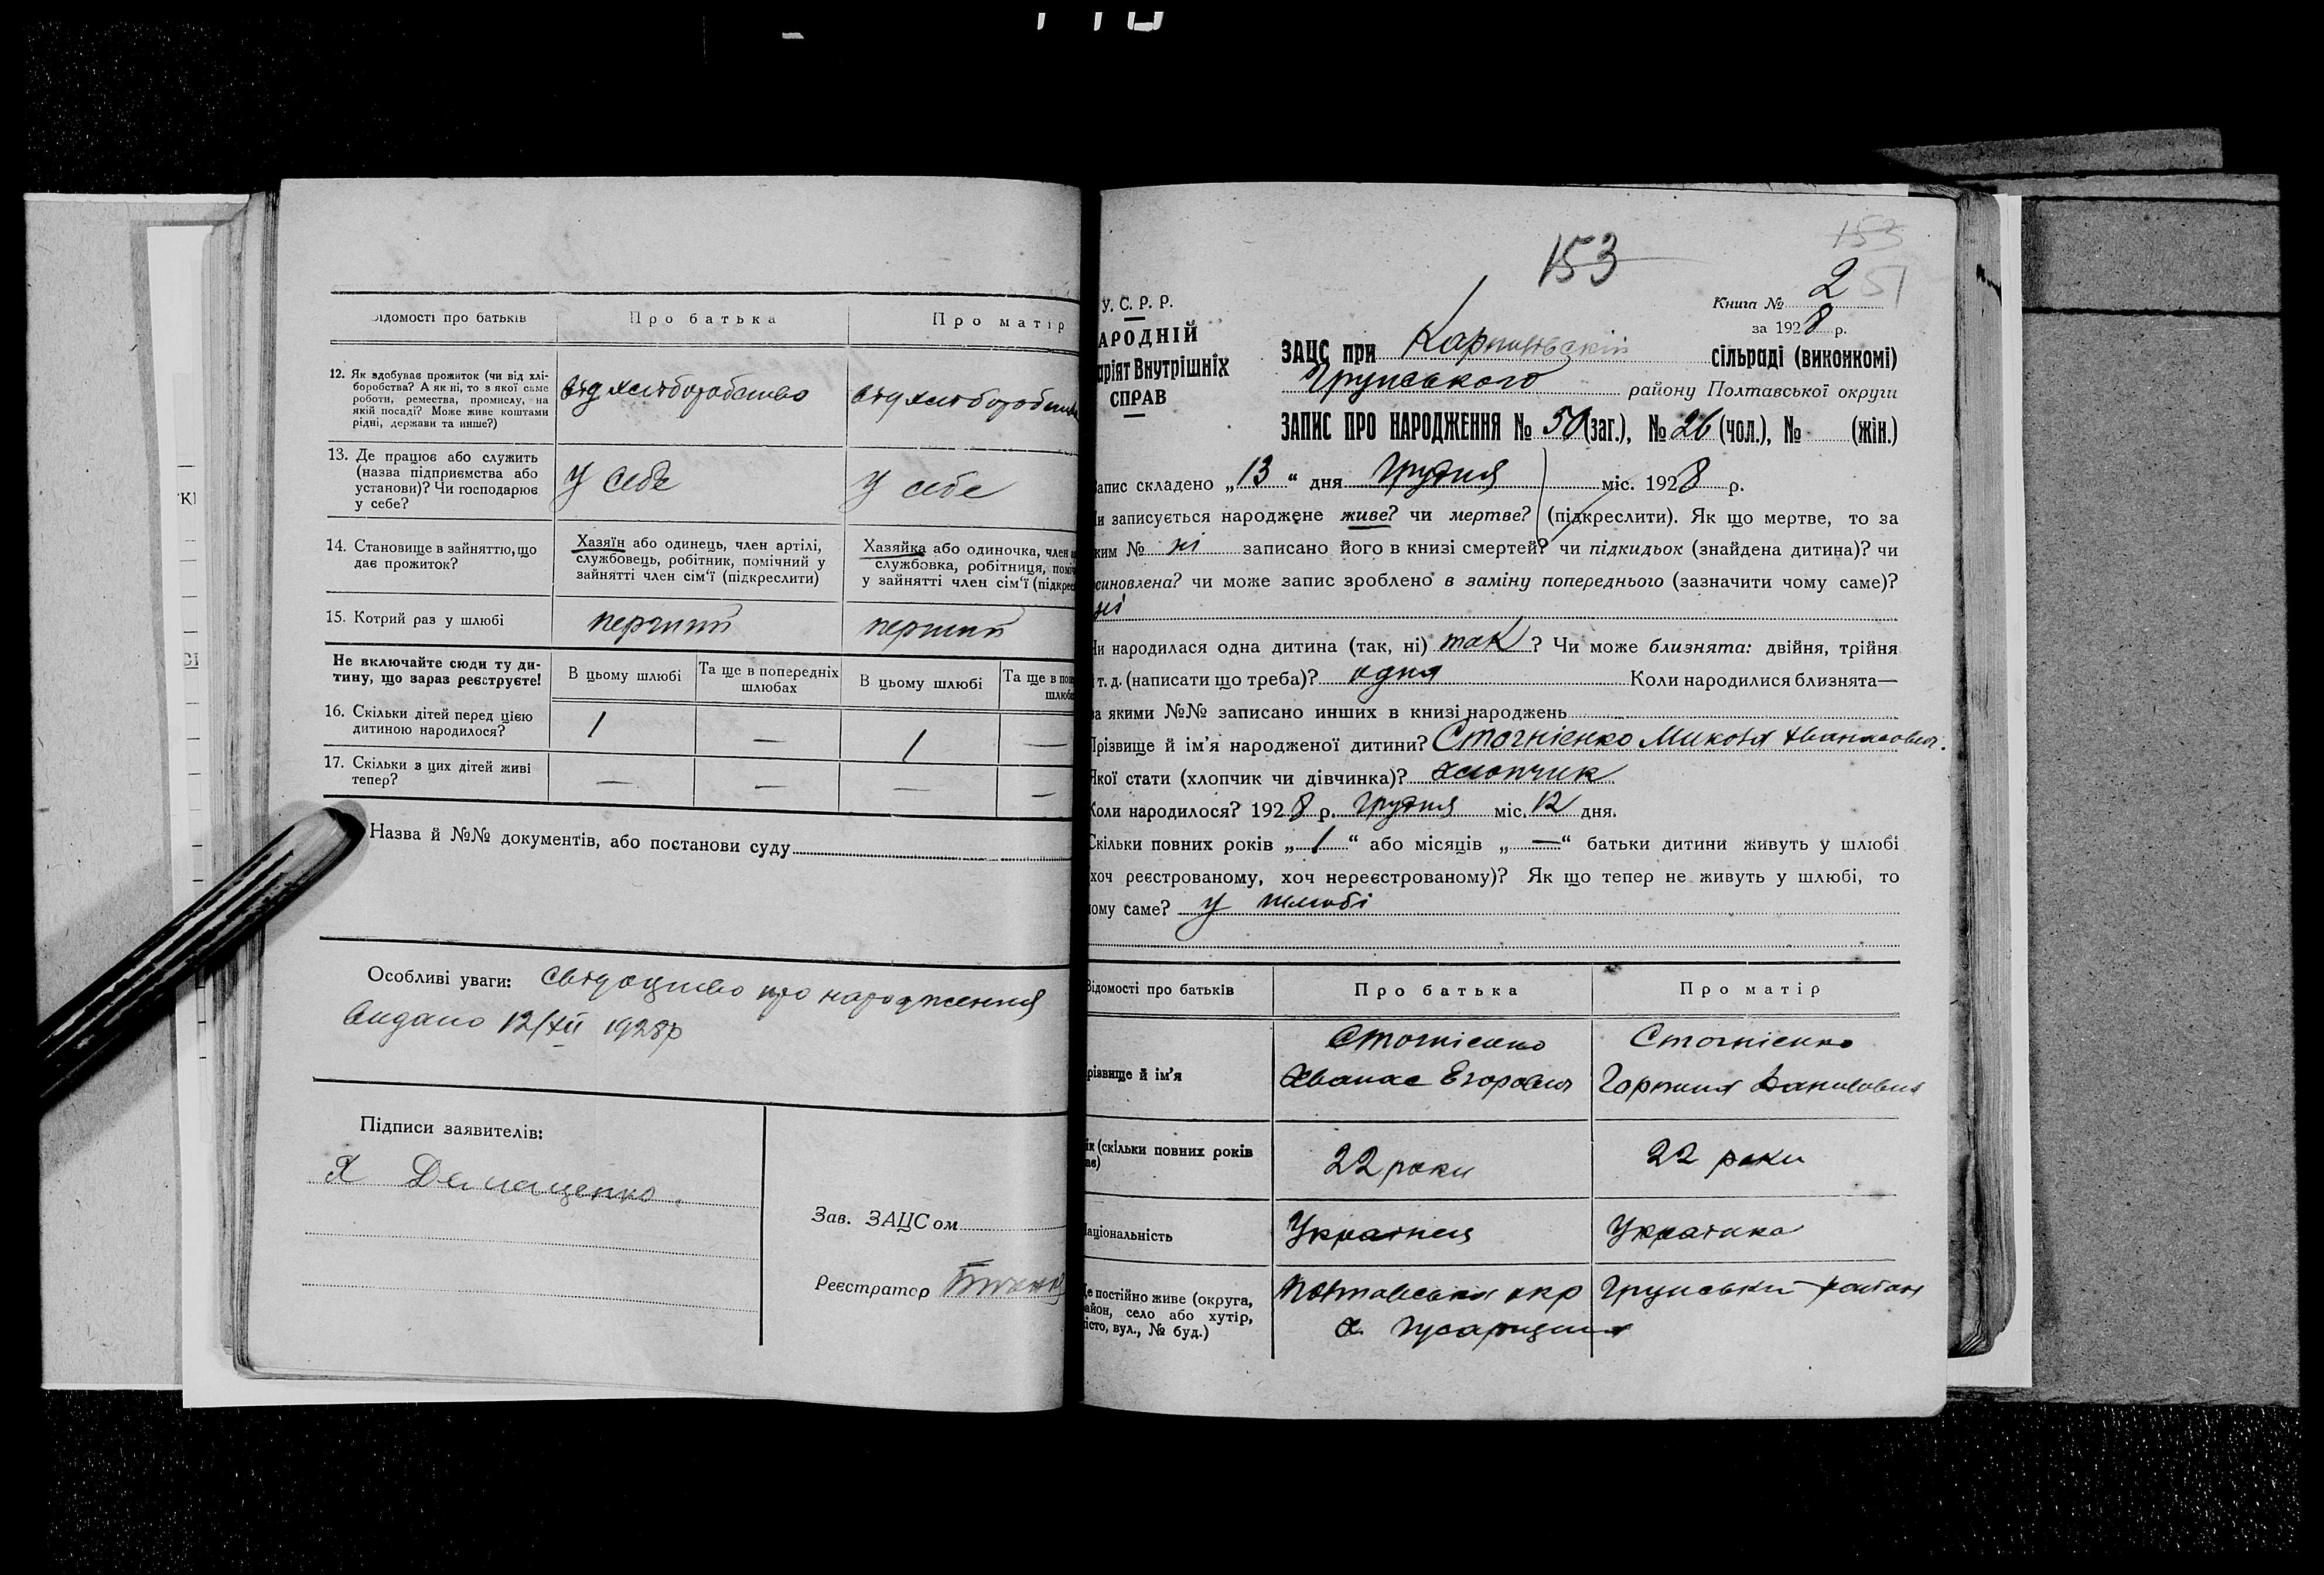 Відомості про батьків
Про батька
Про матір
12. Як здобуває прожиток (чи від хлі-
боробства? А як ні, то з якої саме
роботи, ремества, промислу, на
якій посаді? Може живе коштами
рідні, держави та инше?)
від хліборобства
від хліборобства
13. Де працює або служить
(назва підприємства або
установи)? Чи господарює
у себе?
у себе
у себе
14. Становище в зайняттю, що
дає прожиток?
Хазяїн або одинець, член артілі,
службовець, робітник, помічний у
зайнятті член сім'ї (підкреслити)
Хазяйка або одиночка, член
службовка, робітниця, поміч
у зайнятті член сім'ї (підкрес
15. Котрий раз у шлюбі
перший
перший
Не включайте сюди ту ди-
тину, що зараз реєструєте!
В цьому шлюбі
Та ще в попередніх
шлюбах
В цьому шлюбі
Та ще в поп
шлюба
16. Скільки дітей перед цією
дитиною народилося?
1 — 1 —
17. Скільки з цих дітей живі
тепер?
— — — —
Назва й №№ документів, або постанови суду
Особливі уваги: свідоцтво про народження
видано 12/XII 1928р
Підписи заявителів:
Зав. ЗАЦСом
Реєстратор
153
153
51
У. С. Р. Р.
АРОДНІЙ
аріят Внутрішніх
СПРАВ
Книга № 2
за 1928 р.
ЗАЦС при сільраді (виконкомі)
Грунського району Полтавської округи
ЗАПИС ПРО НАРОДЖЕННЯ № 50 (заг.), № 26 (чол.), № (жін.)
Запис складено „13“ дня Грудня міс. 1928 р.
Чи записується народжене живе? чи мертве? (підкреслити). Як що мертве, то за
яким № ні записано його в книзі смертей? чи підкидьок (знайдена дитина)? чи
усиновлена? чи може запис зроблено в заміну попереднього (зазначити чому саме)?
ні
Чи народилася одна дитина (так, ні) так ? Чи може близнята: двійня, трійня
і т. д. (написати що треба)? одна Коли народилися близнята—
за якими №№ записано инших в книзі народжень
Прізвище й ім'я народженої дитини? Стогнієнко Микола Хванасович.
Якої стати (хлопчик чи дівчинка)? хлопчик
Коли народилося? 1928 р. Грудня міс. 12 дня.
Скільки повних років „1“ або місяців „—“ батьки дитини живуть у шлюбі
(хоч реєстрованому, хоч нереєстрованому)? Як що тепер не живуть у шлюбі, то
чому саме? у шлюбі
Відомості про батьків
Про батька
Про матір
Прізвище й ім'я
Стогнієнко
Хванас Егорович
Стогнієнко
Горпина
Вік (скільки повних років
має)
22 роки
22 роки
Національність
Українец
Українка
Де постійно живе (округа,
район, село або хутір,
місто, вул., № буд.)
Полтавська окр Грунський район
х.